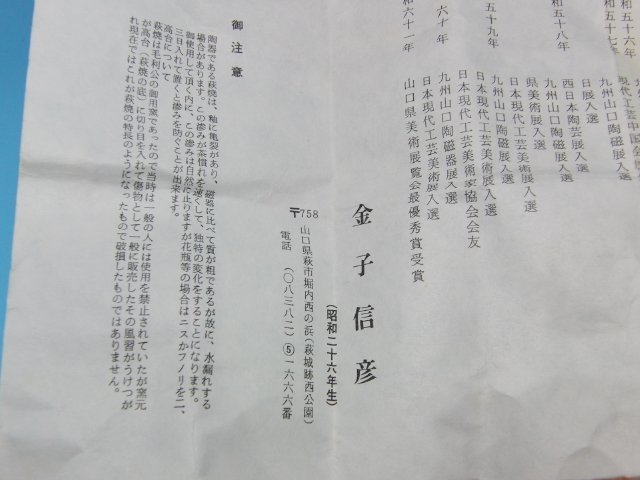 和五十六年
現代工芸中国会
和五十七年
九州山口陶磁展入選
日展入選
西日本陶芸展入選
和五十八年
九州山口陶磁展入選
県美術展入選
現代工芸美術展入選
日本現代工芸美術展入選
五十九年
九州山口陶磁展入選
日本現代工芸美術展入選
日本現代工芸美術家協会会友
六十年
九州山口陶磁器展入選
日本現代工芸美術展入選
和六十一年
山口県美術展覧会最優秀賞受賞
金子信彦
(昭和二十六年生)
〒758
山口県萩市堀内西の浜(萩城跡西公園)
電話 (〇八三八二)⑤一六六六番
御注意
陶器である萩焼は、釉に亀裂があり、磁器に比べて質が粗であるが故に、水漏れする
場合があります。この滲みが茶慣れを速くして、独特の変化をすることになります。
御使用して頂く内に、この滲みは自然に止りますが花瓶等の場合はニスかフノリを二、
三日入れて置くと滲みを防ぐことが出来ます。
高台について
萩焼は毛利公の御用窯であったので当時は一般の人には使用を禁止されていたが窯元
が高台(萩焼の底)に切り目を入れて傷物として一般に販売したその風習がうけつが
れ現在ではこれが萩焼の特長のようになったもので破損したものではありません。